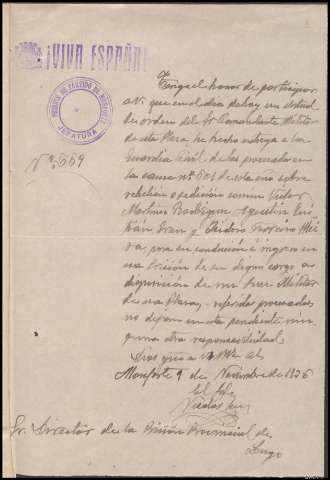 ¡VIVA ESPAÑA!
PRISION DE PARTIDO DE MONFORTE
JEFATURA
Nº 669
Tengo el honor de participar
a V. que en el día de hoy, en virtud
de orden del Sr Comandante Militar
de esta Plaza, he hecho entrega a la
Guardia Civil de los procesados en
la causa nº 501 de este año sobre
rebelión o sedición
Martinez Rodríguez, Agustín
y Isidoro
para su conducción é ingreso en
esa Prisión de su digno cargo a
disposición de Juez Militar
de esa Plaza, referidos procesados
no dejan en esta pendiente nin-
guna otra responsabilidad.
Dios gue a V. m
Monforte 9 de Noviembre de 1936
El Jefe
Sr. Director de la Prisión Provincial de
Lugo